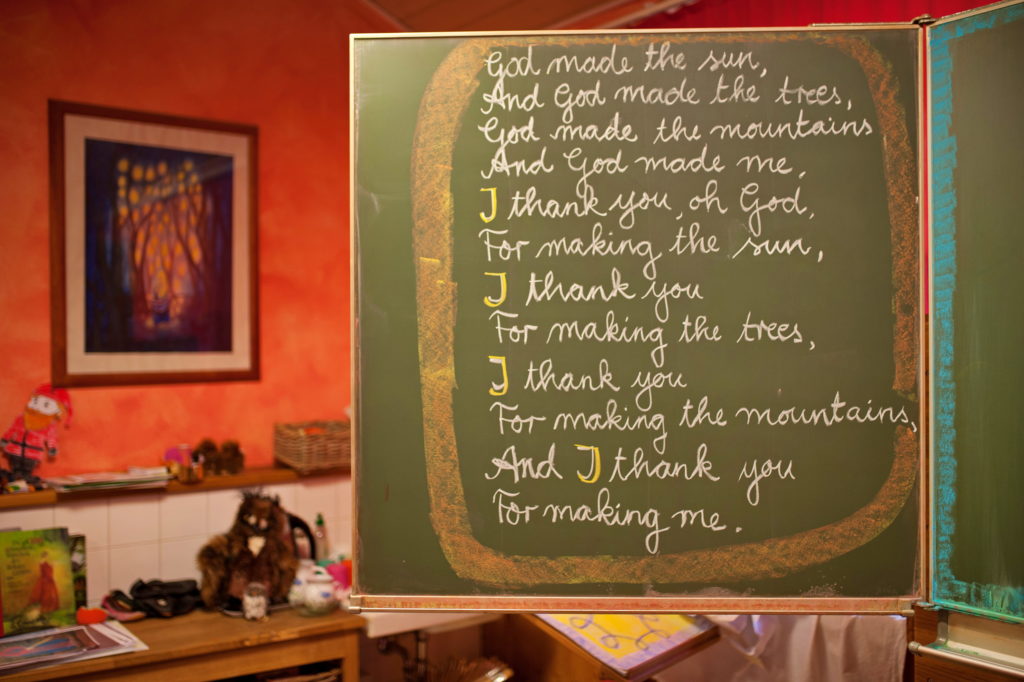 God made the sun,
And God made the trees,
God made the mountains
And God made me.
I thank you, oh God,
For making the sun,
I thank you
For making the trees,
I thank you
For making the mountains,
And I thank you
For making me.